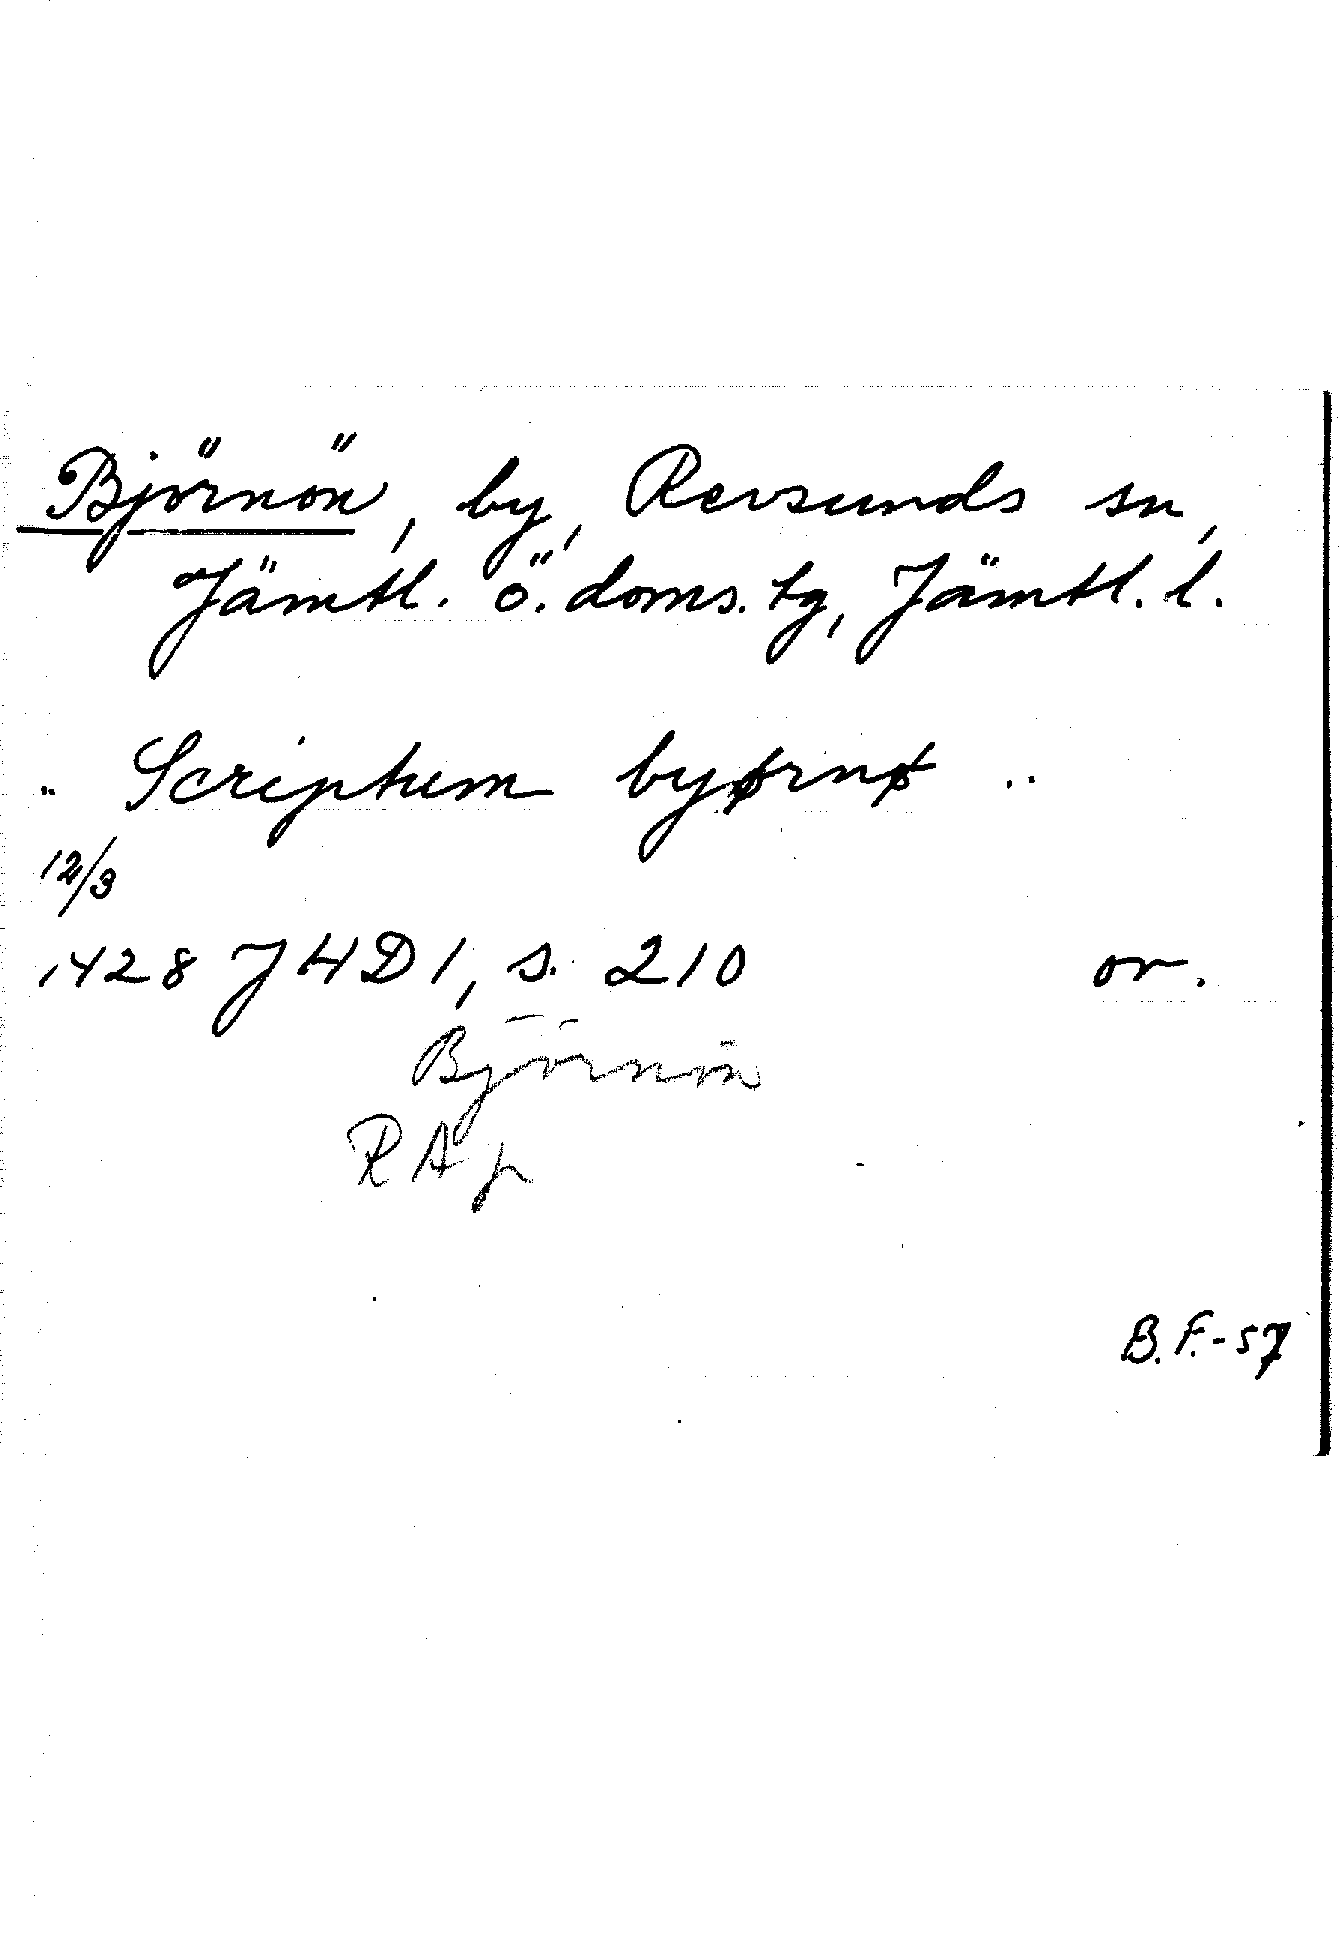 Björnön, by, Revsunds sn,
Jämtl. ö. doms. tg, Jämtl. l.
.. Scriptum byørnø ..
12/3
1428 JHD 1, s. 210 or.
Björnön
RAp
B.F.-57